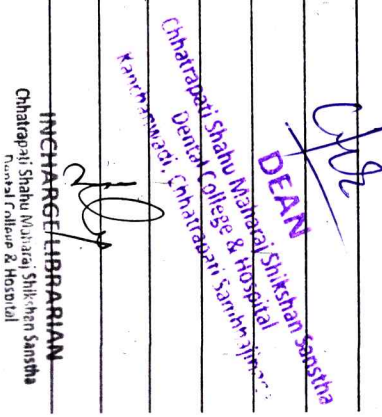 DEAN
Chhatrapati Shahu Maharaj Shikshan Sanstha
Dental College & Hospital
Kanchanwadi, Chhatrapati
INCHARGE LIBRARIAN
Chhatrapati Shahu Maharaj Shikshan Sanstha
Dental College & Hospital